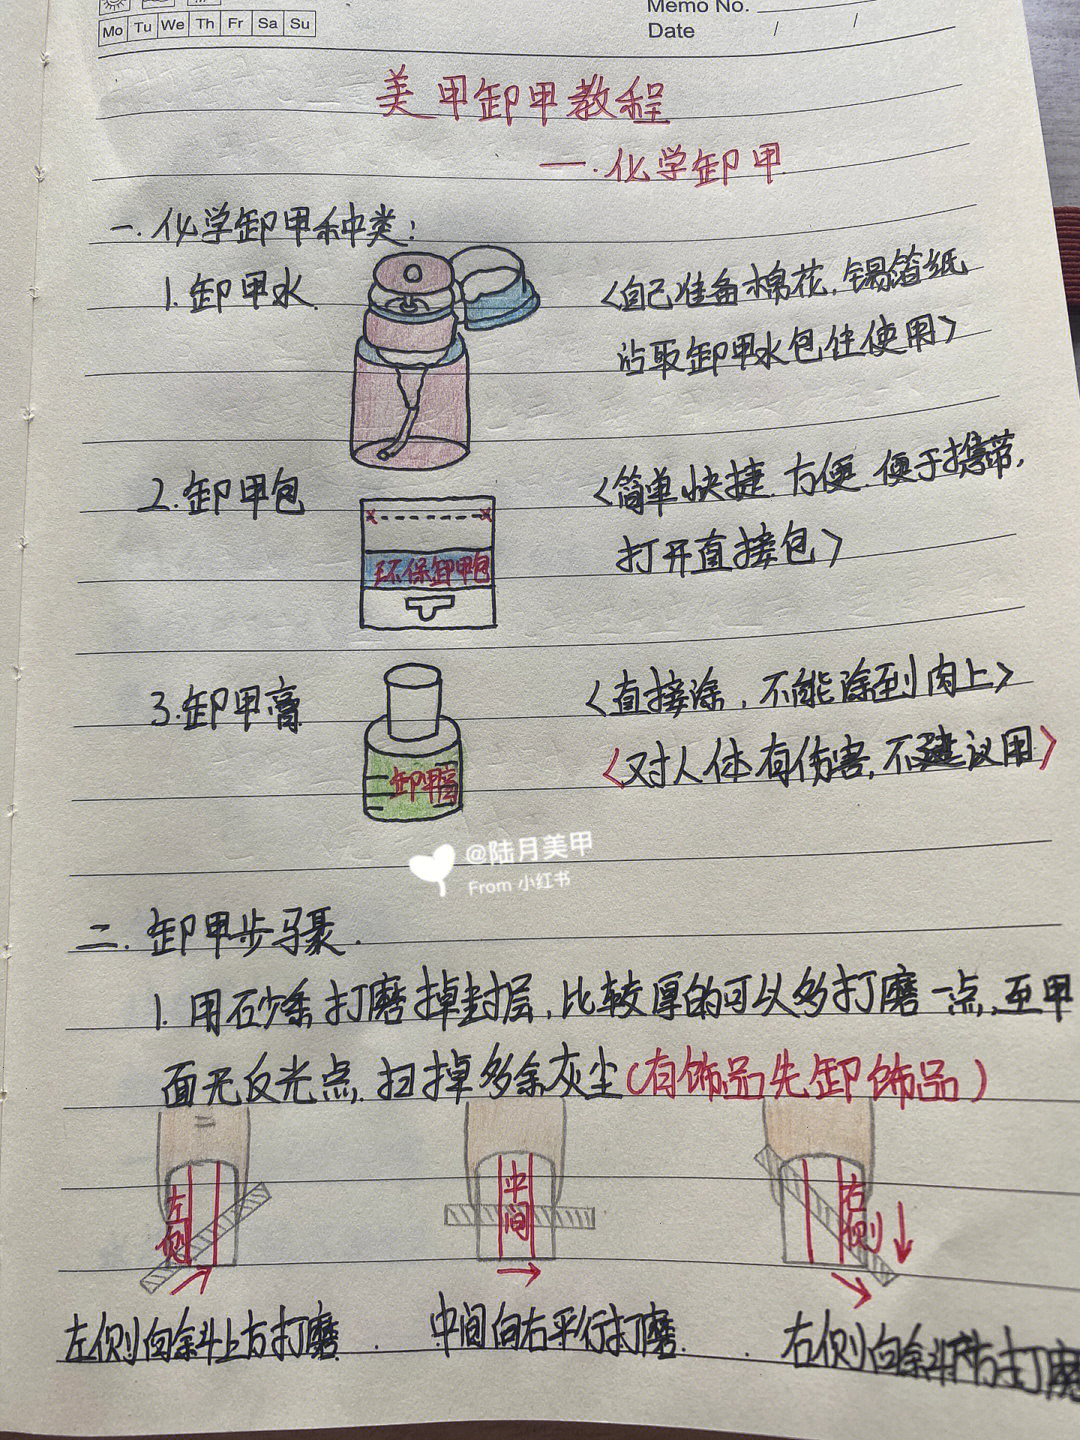 Memo No.
Mo Tu We Th Fr Sa Su
Date / /
美甲卸甲教程
一.化学卸甲
一.化学卸甲种类:
1.卸甲水
<自己准备棉花,锡箔纸
沾取卸甲水包住使用>
2.卸甲包
<简单快捷.方便.便于携带,
打开直接包>
环保卸甲包
3.卸甲膏
<直接涂,不能涂到肉上>
<对人体有伤害,不建议用>
卸甲膏
@陆月美甲
From 小红书
二.卸甲步骤.
1.用砂条打磨掉封层,比较厚的可以多打磨一点,至甲
面无反光点.扫掉多余灰尘(有饰品先卸饰品)
左侧
中间
右侧
左侧向斜上方打磨.
中间向右平行打磨.
右侧向斜下方打磨